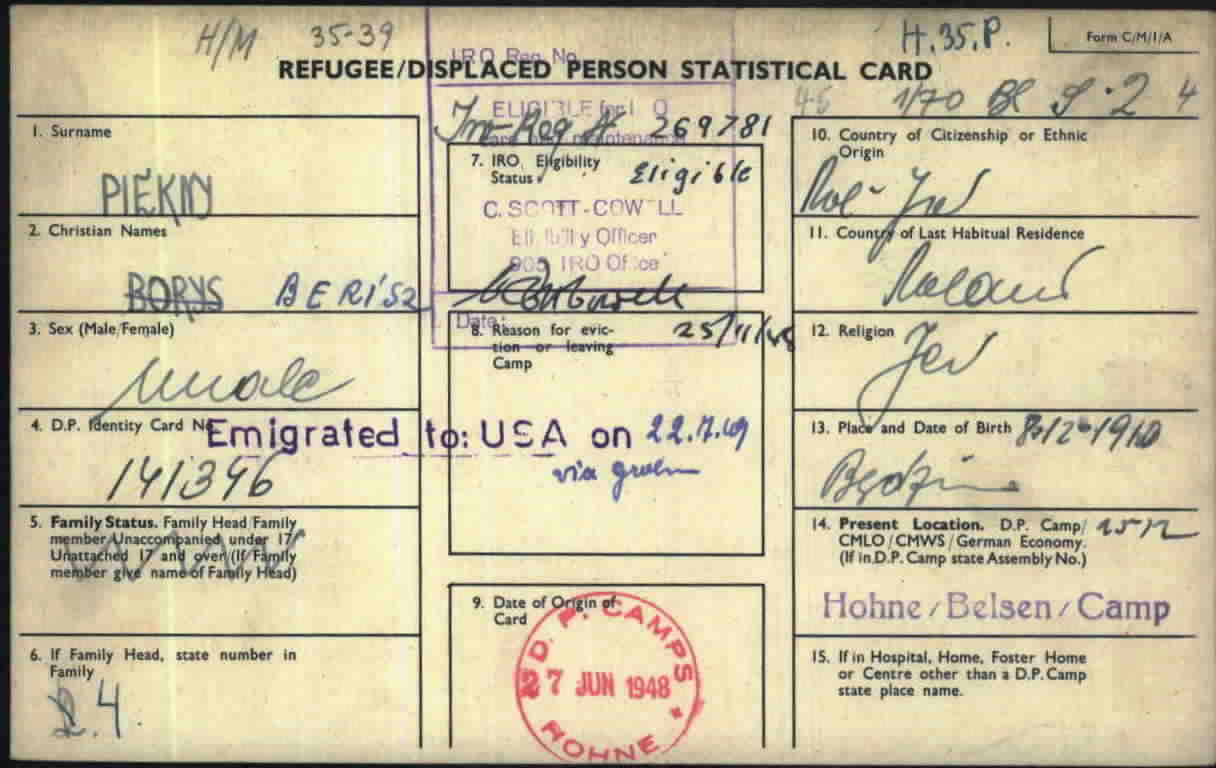 H/M 35-39
H.35.P.
Form C/M/1/A
I.R.O. Reg. No.
REFUGEE/DISPLACED PERSON STATISTICAL CARD
45 1/70 Bl S.2 4
ELIGIBLE for I O
269781
1. Surname
PIEKNY
2. Christian Names
BORYS BERISZ
3. Sex (Male/Female)
Male
4. D.P. Identity Card No.
141346
5. Family Status. Family Head/Family
member/Unaccompanied under 17/
Unattached 17 and over (If Family
member give name of Family Head)
6. If Family Head, state number in
Family
2. 4.
7. IRO Eligibility
Status.
Eligible
C. SCOTT-COWELL
Eligibility Officer
905 IRO Office
Date:
25/11/48
8. Reason for evic-
tion or leaving
Camp
Emigrated to: USA on 22.11.49
via
9. Date of Origin of
Card
D. P. CAMPS
27 JUN 1948
HOHNE
10. Country of Citizenship or Ethnic
Origin
Pol-Jew
11. Country of Last Habitual Residence
Poland
12. Religion
Jew
13. Place and Date of Birth 8.12.1910
Będzin
14. Present Location. D.P. Camp/
CMLO/CMWS/German Economy.
(If in D.P. Camp state Assembly No.)
Hohne/Belsen/Camp
15. If in Hospital, Home, Foster Home
or Centre other than a D.P. Camp
state place name.